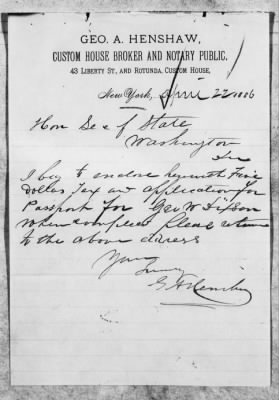 GEO. A. HENSHAW,
CUSTOM HOUSE BROKER AND NOTARY PUBLIC,
43 LIBERTY ST., AND ROTUNDA, CUSTOM HOUSE,
New York, April 22 1886
Hon Sec of State
Washington
Sir
I beg to enclose herewith Five
Dollars Tax and application for
Passport for Geo W
When complete please return
to the above address
Yours
Truly
G A Henshaw